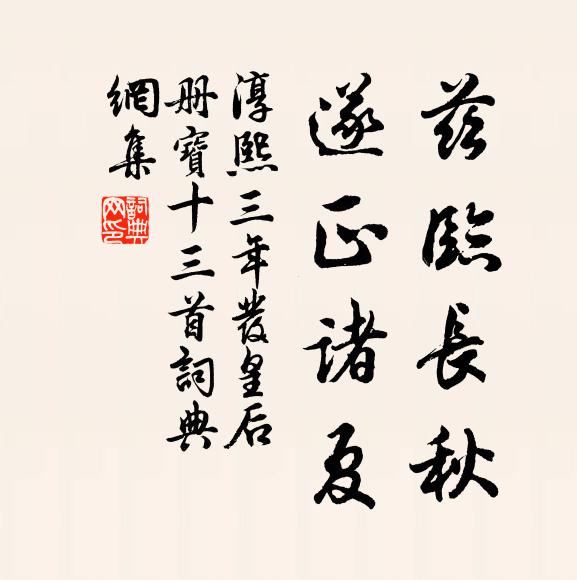 茲臨長秋
遂正諸夏
淳熙三年發皇后
册寶十三首詞典
網集
詞典
网印